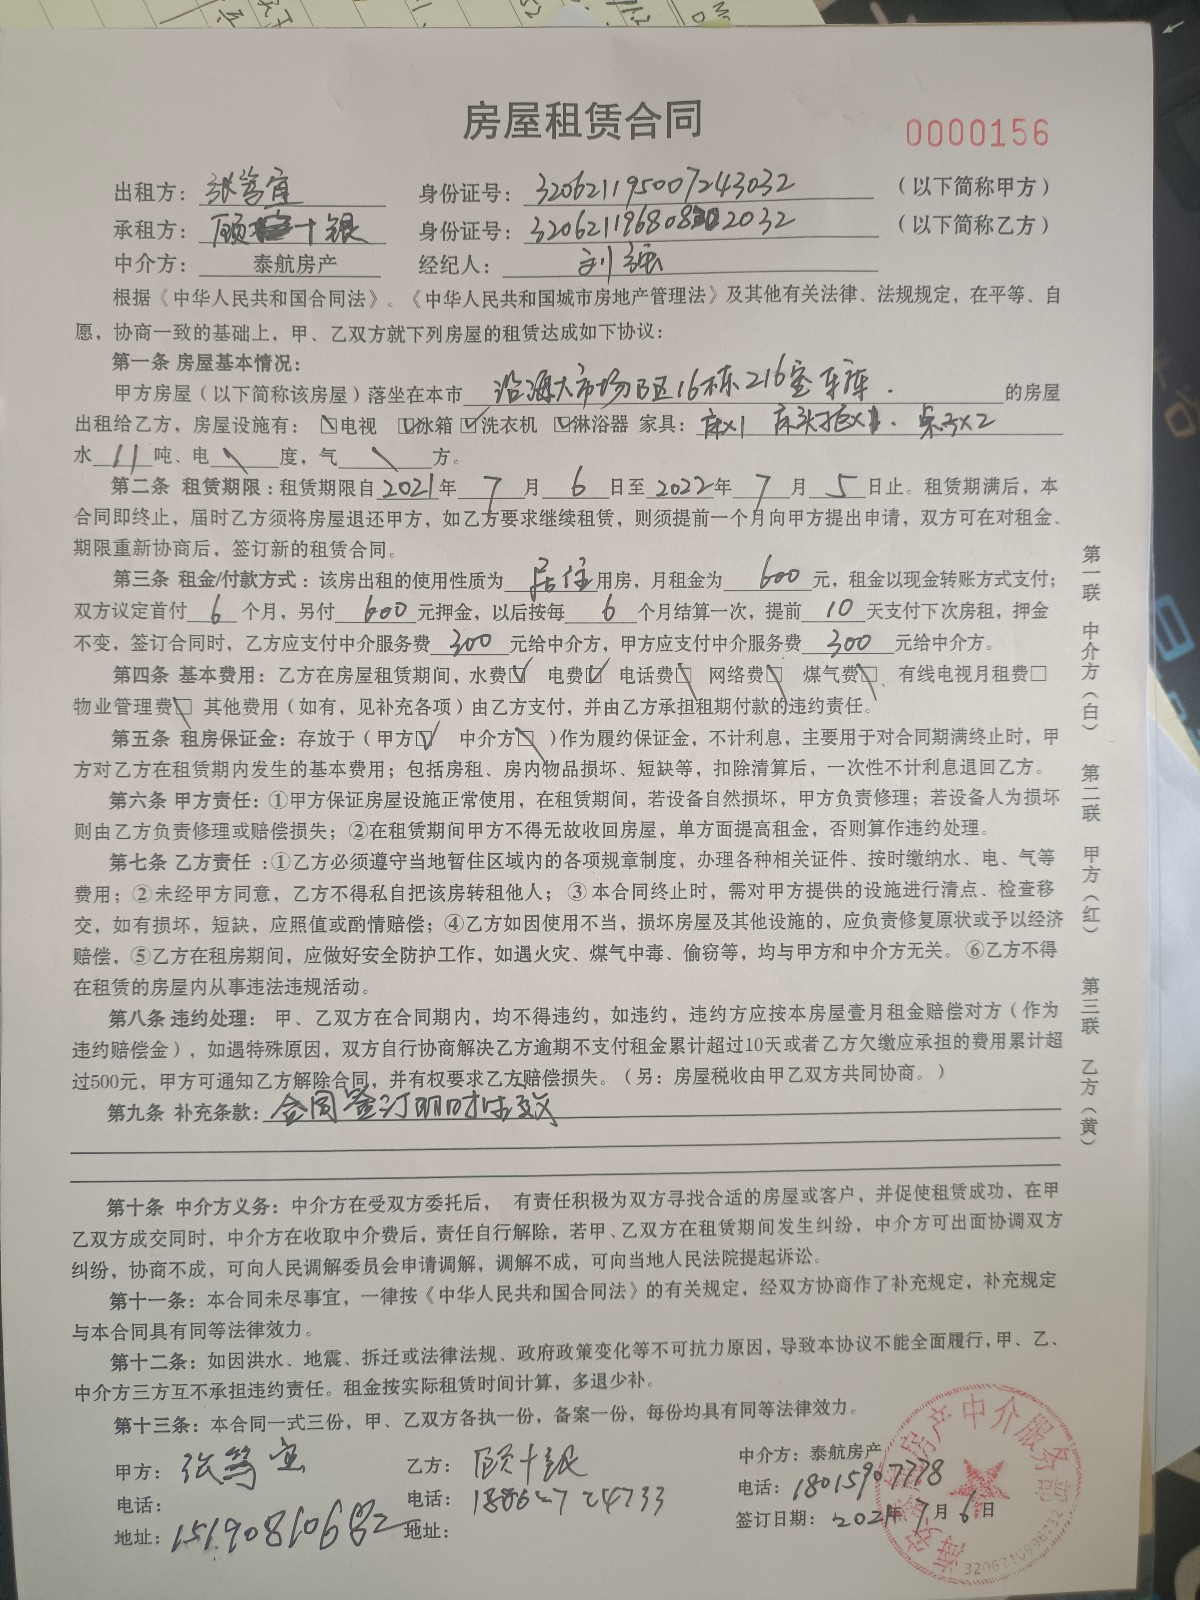 房屋租赁合同
0000156
出租方：张笃宜 身份证号：320621195007243032 （以下简称甲方）
承租方：顾十银 身份证号： （以下简称乙方）
中介方：泰航房产 经纪人：刘强
根据《中华人民共和国合同法》。《中华人民共和国城市房地产管理法》及其他有关法律、法规规定，在平等、自
愿，协商一致的基础上，甲、乙双方就下列房屋的租赁达成如下协议：
第一条 房屋基本情况：
甲方房屋（以下简称该房屋）落坐在本市 沿海大市场B区16栋216室车库. 的房屋
出租给乙方，房屋设施有：□电视 ☑冰箱 ☑洗衣机 ☑淋浴器 家具：床x1 床头柜x1. 桌子x2
水 11 吨、电 \ 度，气 \ 方。
第二条 租赁期限：租赁期限自2021年 7 月 6 日至2022年 7 月 5 日止。租赁期满后，本
合同即终止，届时乙方须将房屋退还甲方，如乙方要求继续租赁，则须提前一个月向甲方提出申请，双方可在对租金、
期限重新协商后，签订新的租赁合同。
第三条 租金/付款方式：该房出租的使用性质为 居住 用房，月租金为 600 元，租金以现金转账方式支付；
双方议定首付 6 个月，另付 600 元押金，以后按每 6 个月结算一次，提前 10 天支付下次房租，押金
不变，签订合同时，乙方应支付中介服务费 300 元给中介方，甲方应支付中介服务费 300 元给中介方。
第四条 基本费用：乙方在房屋租赁期间，水费☑ 电费☑ 电话费□ 网络费□ 煤气费□、有线电视月租费□
物业管理费□ 其他费用（如有，见补充各项）由乙方支付，并由乙方承担租期付款的违约责任。
第五条 租房保证金：存放于（甲方☑ 中介方□ ）作为履约保证金，不计利息，主要用于对合同期满终止时，甲
方对乙方在租赁期内发生的基本费用；包括房租、房内物品损坏、短缺等，扣除清算后，一次性不计利息退回乙方。
第六条 甲方责任：①甲方保证房屋设施正常使用，在租赁期间，若设备自然损坏，甲方负责修理；若设备人为损坏
则由乙方负责修理或赔偿损失；②在租赁期间甲方不得无故收回房屋，单方面提高租金，否则算作违约处理。
第七条 乙方责任 ：①乙方必须遵守当地暂住区域内的各项规章制度，办理各种相关证件、按时缴纳水、电、气等
费用；②未经甲方同意，乙方不得私自把该房转租他人；③本合同终止时，需对甲方提供的设施进行清点、检查移
交，如有损坏，短缺，应照值或酌情赔偿；④乙方如因使用不当，损坏房屋及其他设施的，应负责修复原状或予以经济
赔偿，⑤乙方在租房期间，应做好安全防护工作，如遇火灾、煤气中毒、偷窃等，均与甲方和中介方无关。⑥乙方不得
在租赁的房屋内从事违法违规活动。
第八条 违约处理： 甲、乙双方在合同期内，均不得违约，如违约，违约方应按本房屋壹月租金赔偿对方（作为
违约赔偿金），如遇特殊原因，双方自行协商解决乙方逾期不支付租金累计超过10天或者乙方欠缴应承担的费用累计超
过500元，甲方可通知乙方解除合同，并有权要求乙方赔偿损失。（另：房屋税收由甲乙双方共同协商。）
第九条 补充条款：合同签订即时生效
第十条 中介方义务：中介方在受双方委托后， 有责任积极为双方寻找合适的房屋或客户，并促使租赁成功，在甲
乙双方成交同时，中介方在收取中介费后，责任自行解除，若甲、乙双方在租赁期间发生纠纷，中介方可出面协调双方
纠纷，协商不成，可向人民调解委员会申请调解，调解不成，可向当地人民法院提起诉讼。
第十一条：本合同未尽事宜，一律按《中华人民共和国合同法》的有关规定，经双方协商作了补充规定，补充规定
与本合同具有同等法律效力。
第十二条：如因洪水、地震、拆迁或法律法规、政府政策变化等不可抗力原因，导致本协议不能全面履行，甲、乙、
中介方三方互不承担违约责任。租金按实际租赁时间计算，多退少补。
第十三条：本合同一式三份，甲、乙双方各执一份，备案一份，每份均具有同等法律效力。
甲方：张笃宜 乙方：顾十银 中介方：泰航房产
电话： 电话： 电话：18015907778
地址： 地址： 签订日期：2021年7月6日
房产中介服务部
第一联 中介方（白） 第二联 甲方（红） 第三联 乙方（黄）